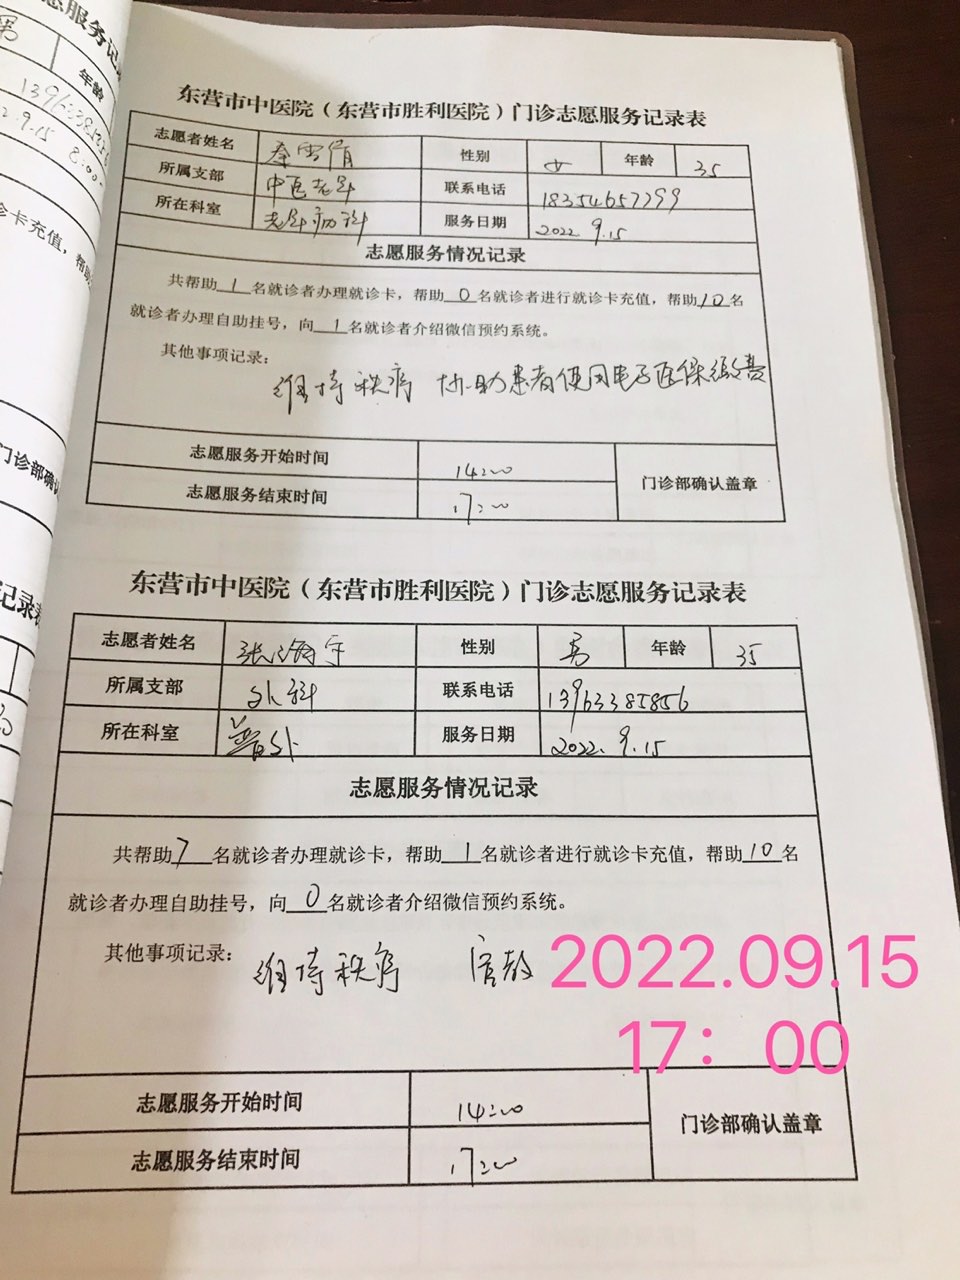 志愿服务记
男
年龄
13963385856
2.9.15 8:00
诊卡充值，帮助
门诊部确认
记录表
东营市中医院（东营市胜利医院）门诊志愿服务记录表
志愿者姓名 秦雪倩 性别 女 年龄 35
所属支部 中医老年 联系电话 18354657799
所在科室 老年病科 服务日期 2022 9.15
志愿服务情况记录
共帮助1名就诊者办理就诊卡，帮助0名就诊者进行就诊卡充值，帮助10名
就诊者办理自助挂号，向1名就诊者介绍微信预约系统。
其他事项记录：
维持秩序 协助患者使用电子医保缴费
志愿服务开始时间 14:00
门诊部确认盖章
志愿服务结束时间 17:00
东营市中医院（东营市胜利医院）门诊志愿服务记录表
志愿者姓名 张海宇 性别 男 年龄 35
所属支部 外科 联系电话 13963385856
所在科室 普外 服务日期 2022.9.15
志愿服务情况记录
共帮助7名就诊者办理就诊卡，帮助1名就诊者进行就诊卡充值，帮助10名
就诊者办理自助挂号，向0名就诊者介绍微信预约系统。
其他事项记录：
维持秩序 宣教
2022.09.15
17：00
志愿服务开始时间 14:00
门诊部确认盖章
志愿服务结束时间 17:00